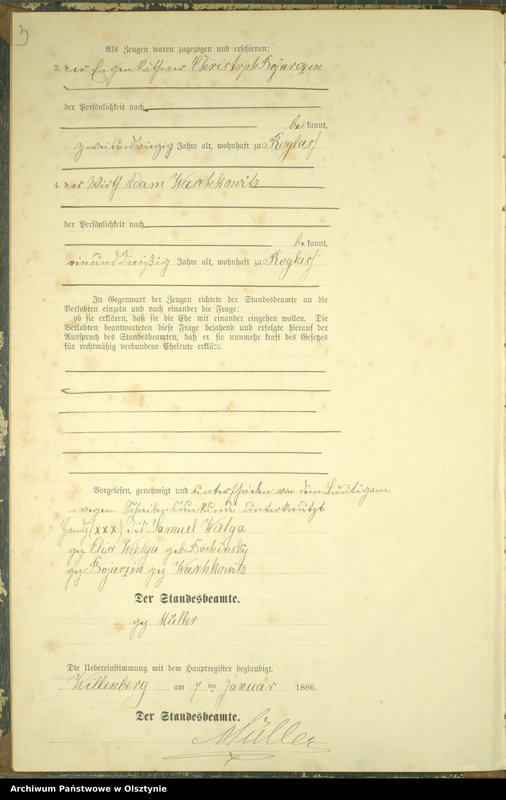 3
Als Zeugen waren zugezogen und erschienen:
3. der Eigenkäthner Christoph Bojarzin
der Persönlichkeit nach
be kannt,
zweiundvierzig Jahre alt, wohnhaft zu Roglas
4. der Wirth Adam Waschkowitz
der Persönlichkeit nach
be kannt,
einunddreißig Jahre alt, wohnhaft zu Roglas
In Gegenwart der Zeugen richtete der Standesbeamte an die
Verlobten einzeln und nach einander die Frage:
ob sie erklären, daß sie die Ehe mit einander eingehen wollen. Die
Verlobten beantworteten diese Frage bejahend und erfolgte hierauf der
Ausspruch des Standesbeamten, daß er sie nunmehr kraft des Gesetzes
für rechtmäßig verbundene Eheleute erkläre.
Vorgelesen, genehmigt und unterschrieben von dem Bräutigam
wegen Schreibensunkunde unterkreuzt
Handz (xxx) des Samuel Walga
gez. Elise Walga geb. Bochinsky
gez. Bojarzin gez. Waschkowitz
Der Standesbeamte.
gez. Müller
Die Uebereinstimmung mit dem Hauptregister beglaubigt.
Willenberg am 7 ten Januar 1886.
Der Standesbeamte.
Müller
Archiwum Państwowe w Olsztynie